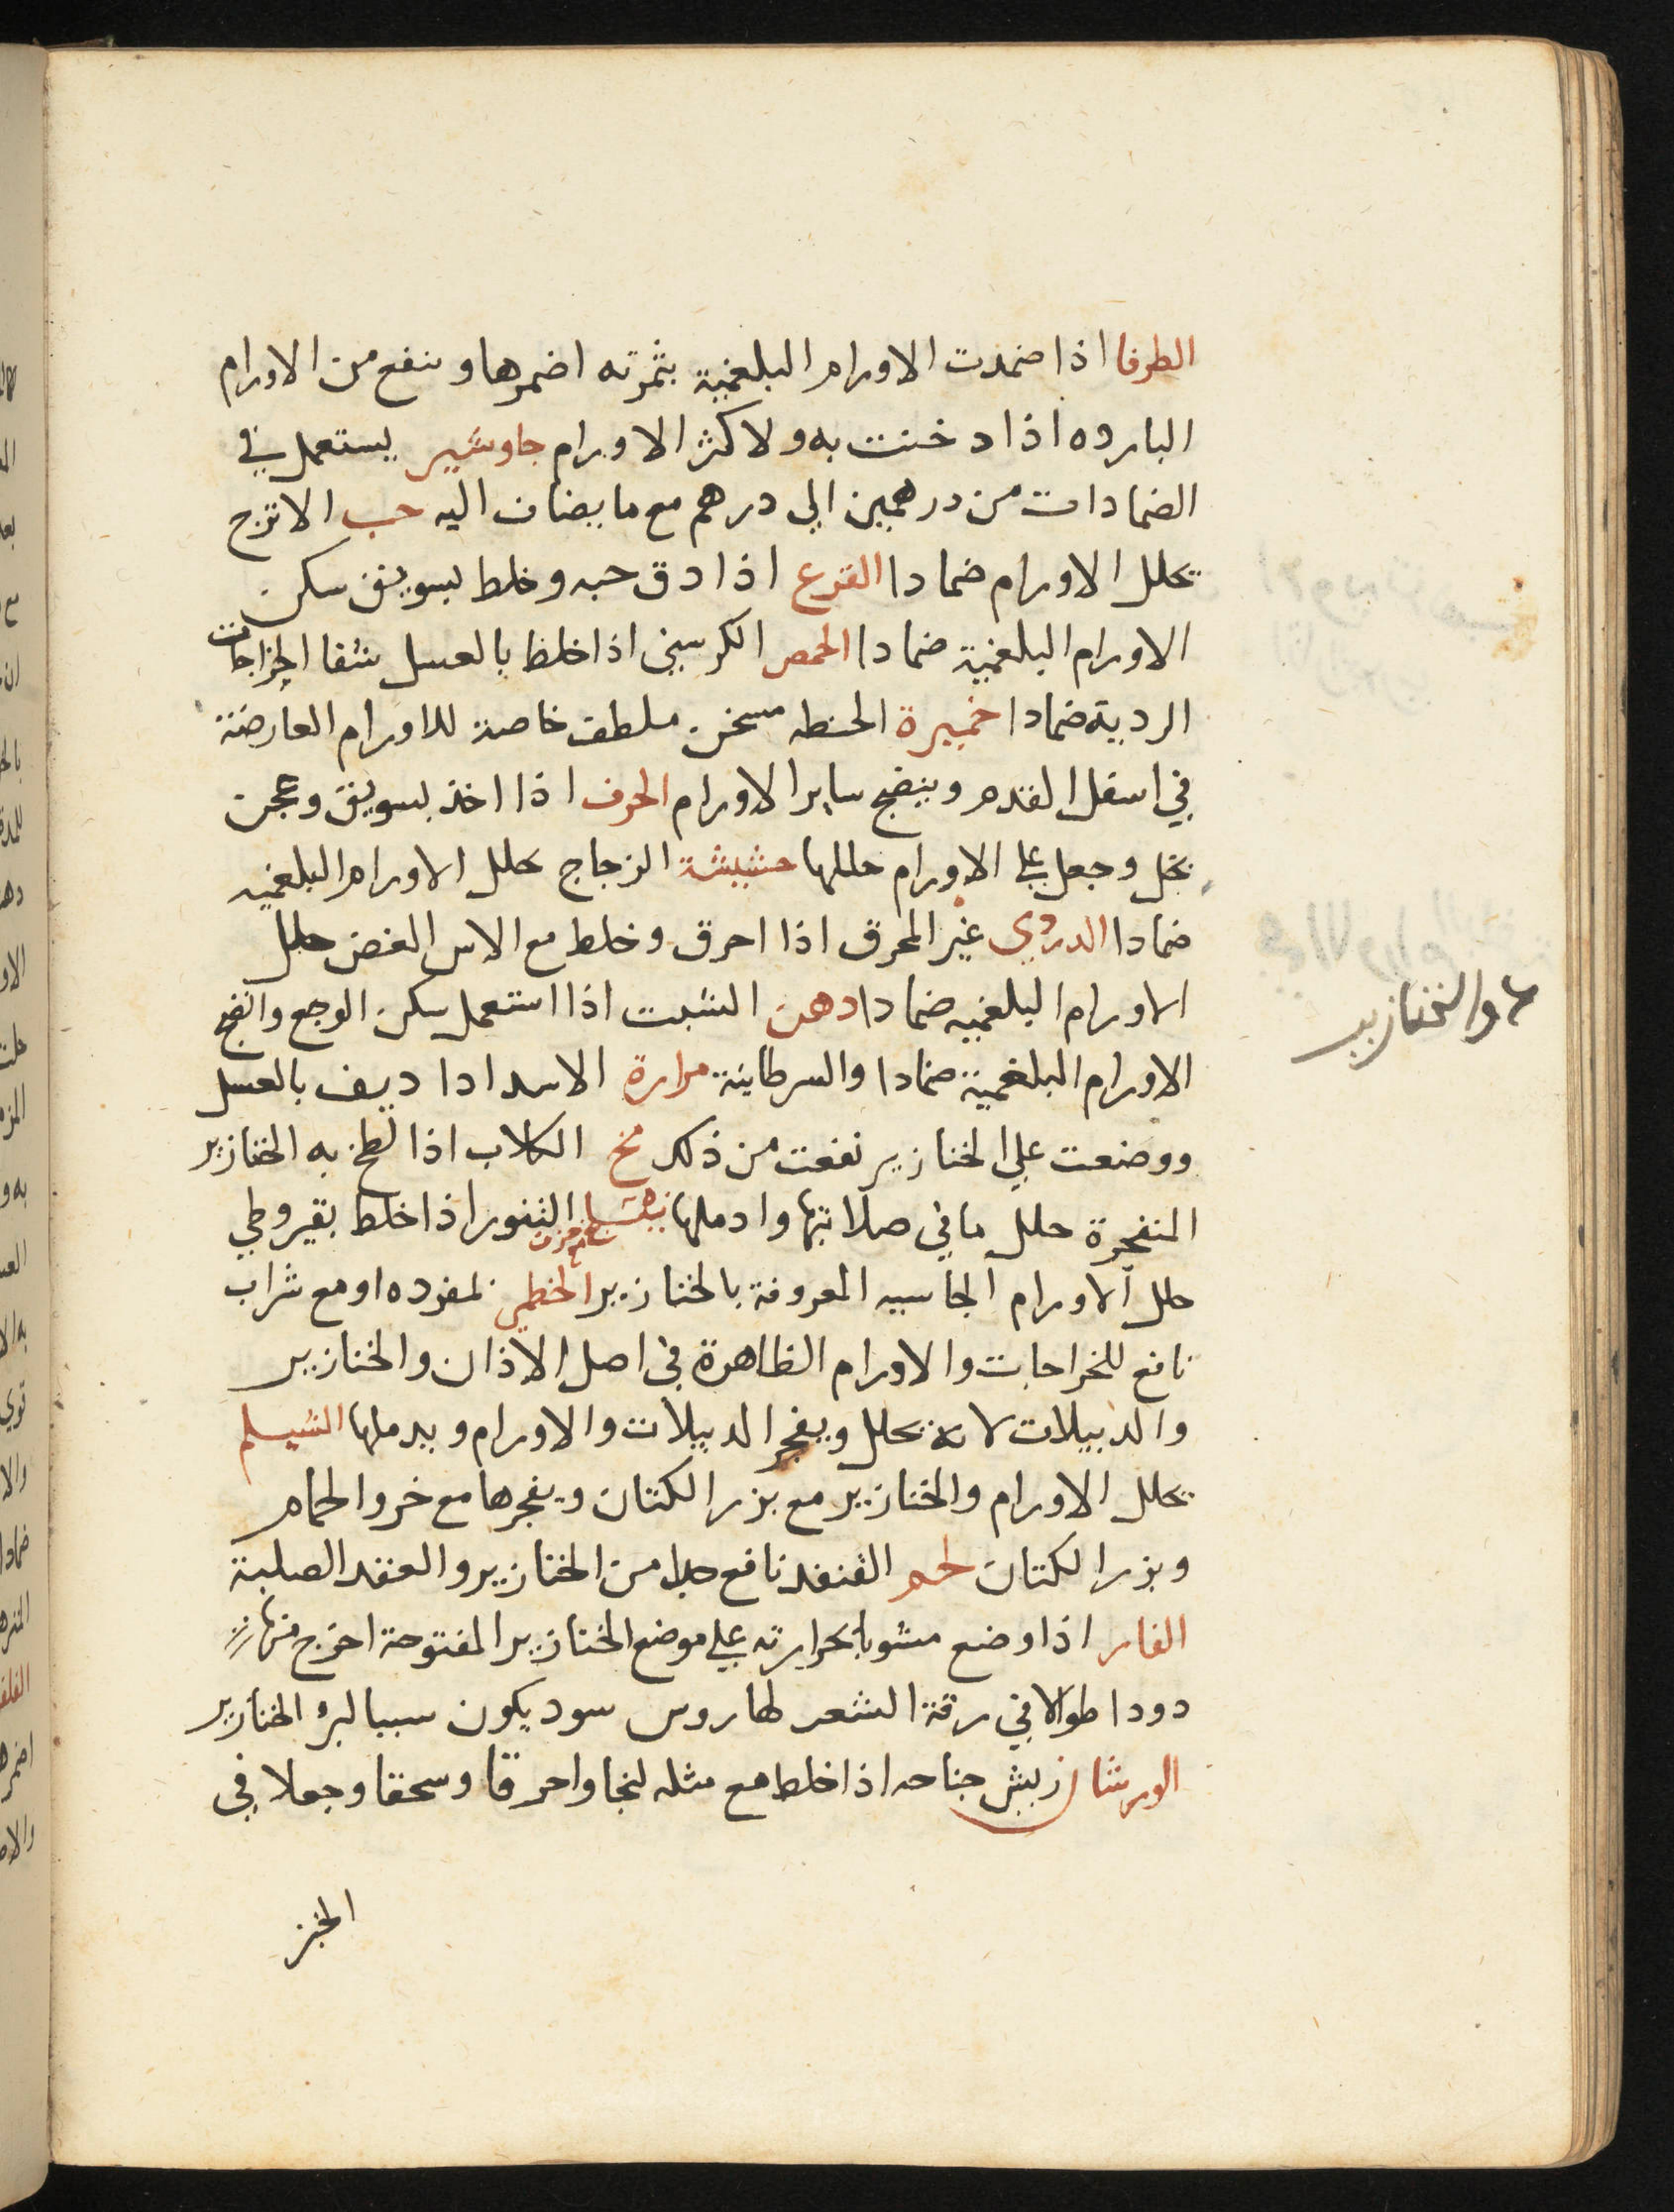 الطرفا اذا ضمدت الاورام البلغمية بثمرته اضمرها وينفع من الاورام
البارده اذا دخنت به ولاكثر الاورام جاوشير يستعمل في
الضمادات من درهمين الي درهم مع ما يضاف اليه حب الاترج
يحلل الاورام ضمادا القرع اذا دق حبه وخلط بسويق سكن
الاورام البلغمية ضمادا الحمص الكرسني اذا خلط بالعسل شفا الجراحات
الردية ضمادا خميرة الحنطه مسخن ملطف خاصة للاورام العارضة
في اسفل القدم وينضج ساير الاورام الحرف اذا اخذ بسويق وعجن
بخل وجعل علي الاورام حللها حشيشة الزجاج يحلل الاورام البلغميه
ضمادا الدردي غير المحرق اذا احرق وخلط مع الاس الغض حلل
الاورام البلغميه ضمادا دهن الشبت اذا استعمل سكن الوجع وانضج
الاورام البلغمية ضمادا والسرطانية مرارة الاسد اذا ديف بالعسل
ووضعت علي الخنازير نفعت من ذلك مخ الكلاب اذا لطخ به الخنازير
المنفجرة حلل ما في صلابتها وادملها التنور اذا خلط بقيروطي
حلل الاورام الجاسيه المعروفة بالخنازير الخطمي بمفرده او مع شراب
نافع للخراجات والاورام الظاهرة في اصل الاذان والخنازير
والدبيلات لانه يحلل ويفجر الدبيلات والاورام ويدملها الشيلم
يحلل الاورام والخنازير مع بزر الكتان ويفجرها مع خرو الحمام
وبزر الكتان لحم القنفد نافع جدا من الخنازير والعقد الصلبة
الفار اذا وضع مشويا بحرارته علي موضع الخنازير المفتوحة اخرج منها
دودا طوالا في رقة الشعر لها روس سود يكون سببا لبرء الخنازير
الورشان ريش جناحه اذا خلط مع مثله بنجا واحرقا وسحقا وجعلا في
الخبز
والخنازير